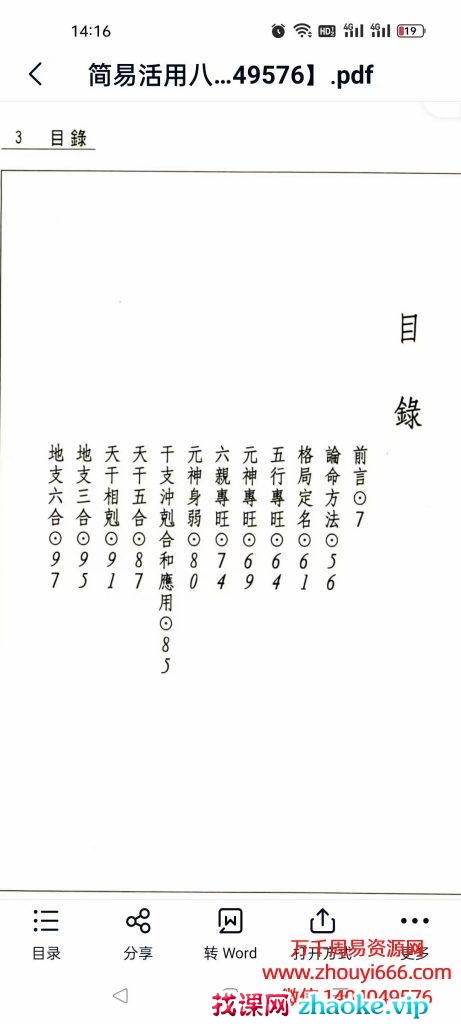 14:16
HD 4G 4G 19
简易活用八...49576】.pdf
3 目錄
目錄
前言⊙7
論命方法⊙56
格局定名⊙61
五行專旺⊙64
元神專旺⊙69
六親專旺⊙74
元神身弱⊙80
干支沖剋合和應用⊙85
天干五合⊙87
天干相剋⊙91
地支三合⊙95
地支六合⊙97
目录
分享
转 Word
打开方式
更多
万千周易资源网
www.zhouyi666.com
找课网 zhaoke.vip